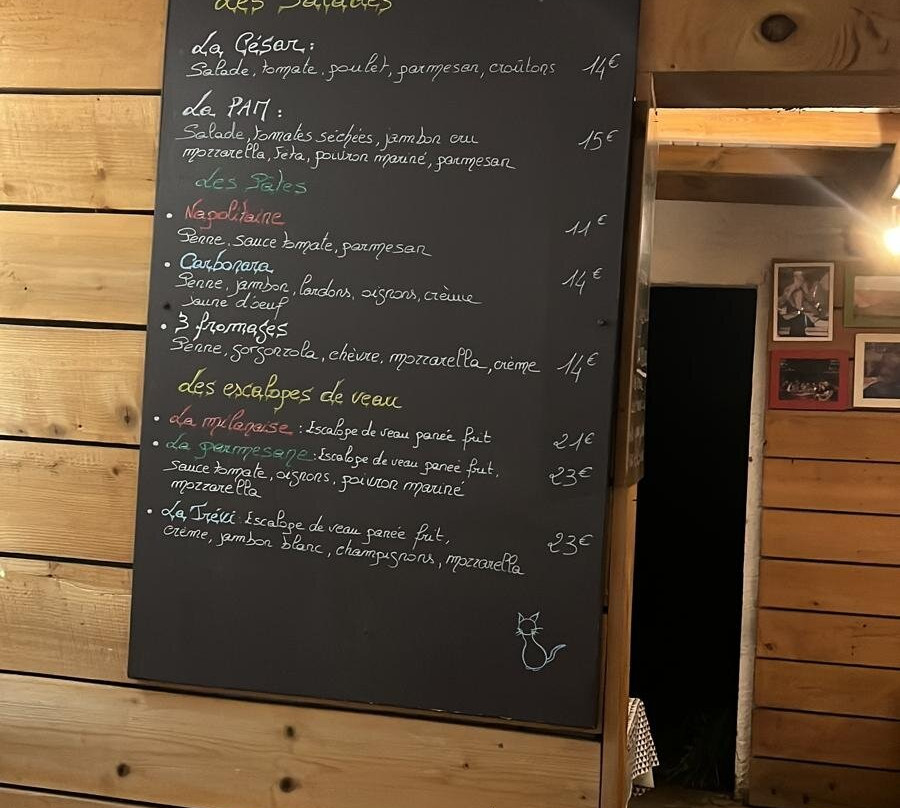 Les Salades
La César :
Salade, tomate, poulet, parmesan, croûtons 14€
La PAM :
Salade, tomates séchées, jambon cru 15€
mozzarella, feta, poivron mariné, parmesan
Les Pâtes
• Napolitaine 11€
Penne, sauce tomate, parmesan
• Carbonara 14€
Penne, jambon, lardons, oignons, crème
Jaune d'oeuf
• 3 fromages
Penne, gorgonzola, chèvre, mozzarella, crème 14€
Les escalopes de veau
• La milanaise : Escalope de veau panée frit 21€
• La parmesane : Escalope de veau panée frit, 23€
sauce tomate, oignons, poivron mariné
mozzarella
• La Trévi : Escalope de veau panée frit, 23€
crème, jambon blanc, champignons, mozzarella